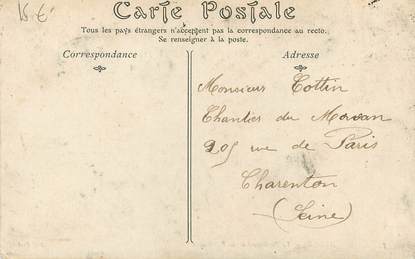 15 €
Carte Postale
Tous les pays étrangers n'acceptent pas la correspondance au recto.
Se renseigner à la poste.
Correspondance
Adresse
Monsieur Cottin
Chantier du Morvan
205 rue de Paris
Charenton
(Seine)